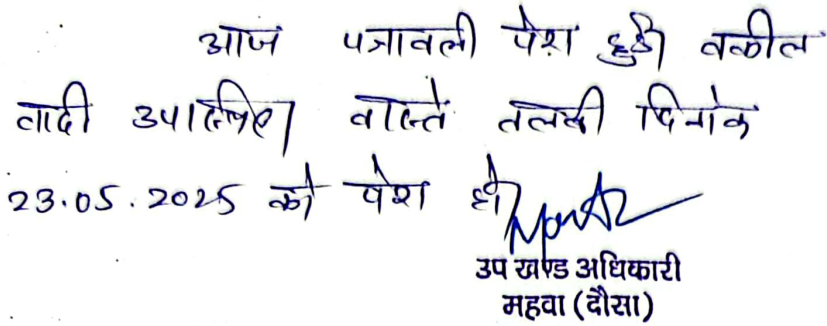 आज पत्रावली पेश हुई। वकील
वादी उपस्थित। वास्ते तलबी दिनांक
23.05.2025 को पेश हो।
उप खण्ड अधिकारी
महवा (दौसा)